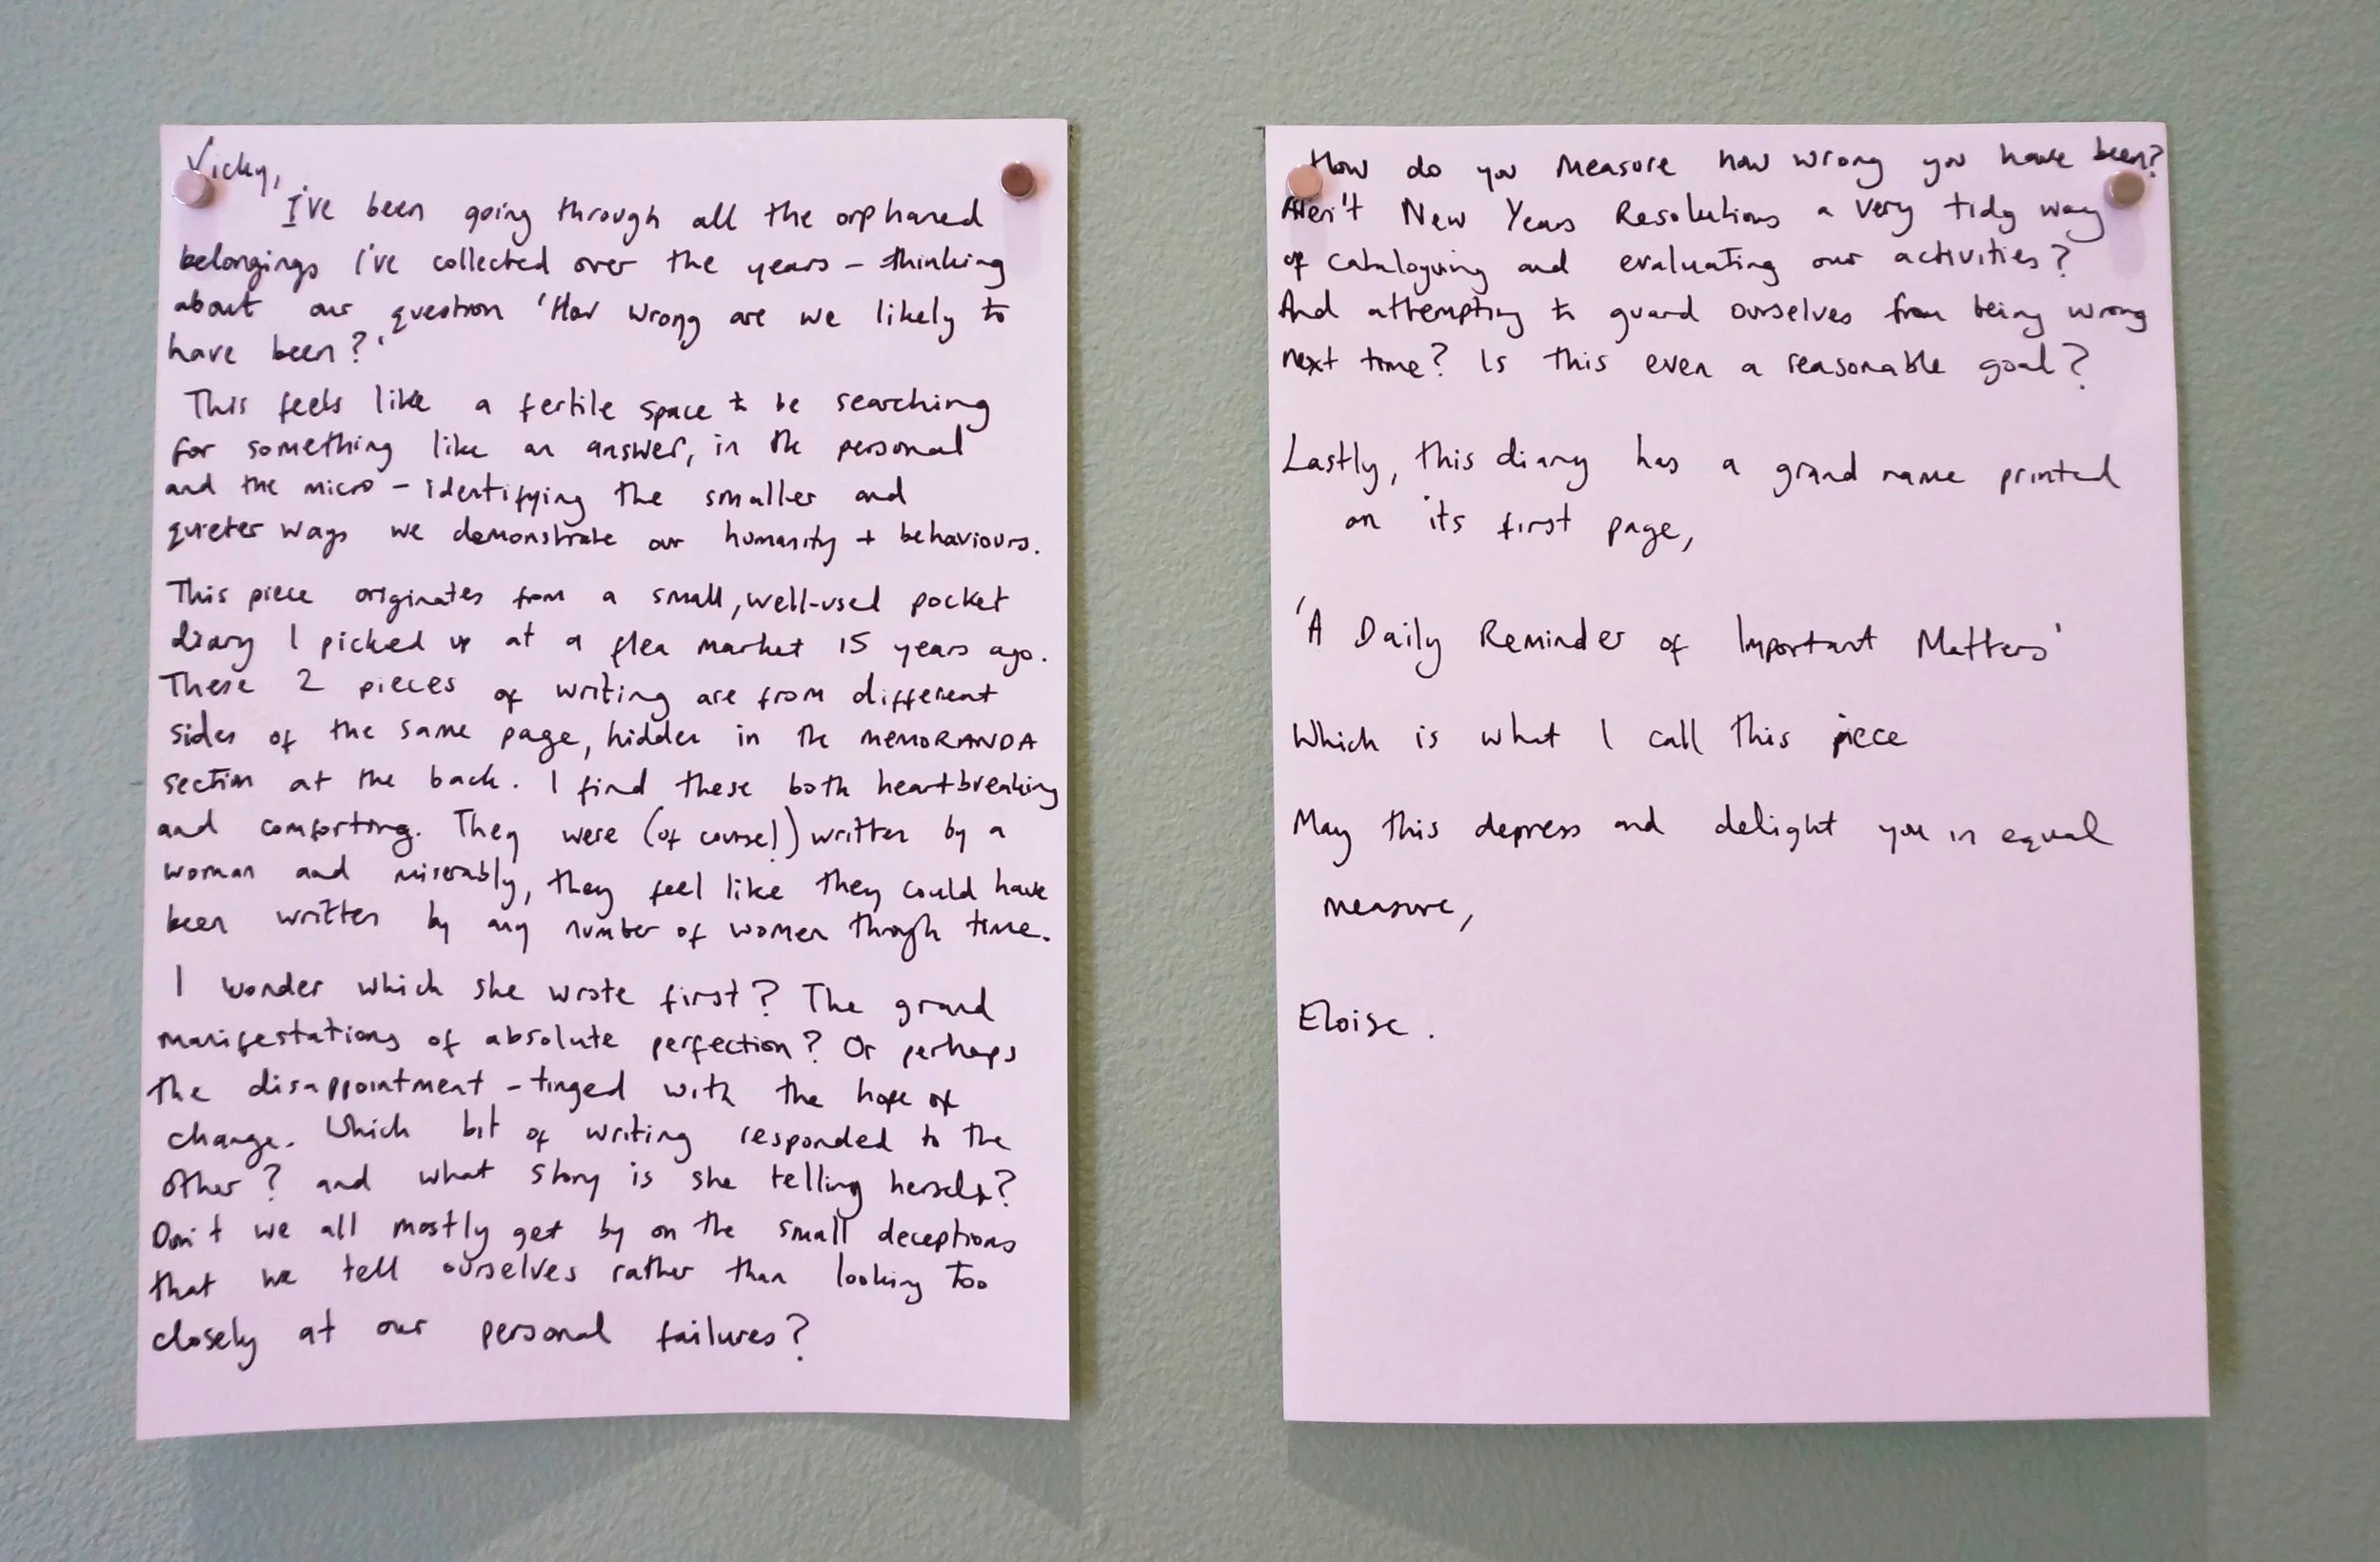 Vicky,
I've been going through all the orphaned
belongings I've collected over the years – thinking
about our question 'How wrong are we likely to
have been?'
This feels like a fertile space to be searching
for something like an answer, in the personal
and the micro – identifying the smaller and
quieter ways we demonstrate our humanity + behaviours.
This piece originates from a small, well-used pocket
diary I picked up at a flea market 15 years ago.
These 2 pieces of writing are from different
sides of the same page, hidden in the MEMORANDA
section at the back. I find these both heartbreaking
and comforting. They were (of course!) written by a
woman and miserably, they feel like they could have
been written by any number of women through time.
I wonder which she wrote first? The grand
manifestations of absolute perfection? Or perhaps
the disappointment – tinged with the hope of
change. Which bit of writing responded to the
other? and what story is she telling herself?
Don't we all mostly get by on the small deceptions
that we tell ourselves rather than looking too
closely at our personal failures?
How do you measure how wrong you have been?
Aren't New Years Resolutions a very tidy way
of cataloguing and evaluating our activities?
And attempting to guard ourselves from being wrong
next time? Is this even a reasonable goal?
Lastly, this diary has a grand name printed
on its first page,
'A Daily Reminder of Important Matters'
Which is what I call this piece
May this depress and delight you in equal
measure,
Eloise.